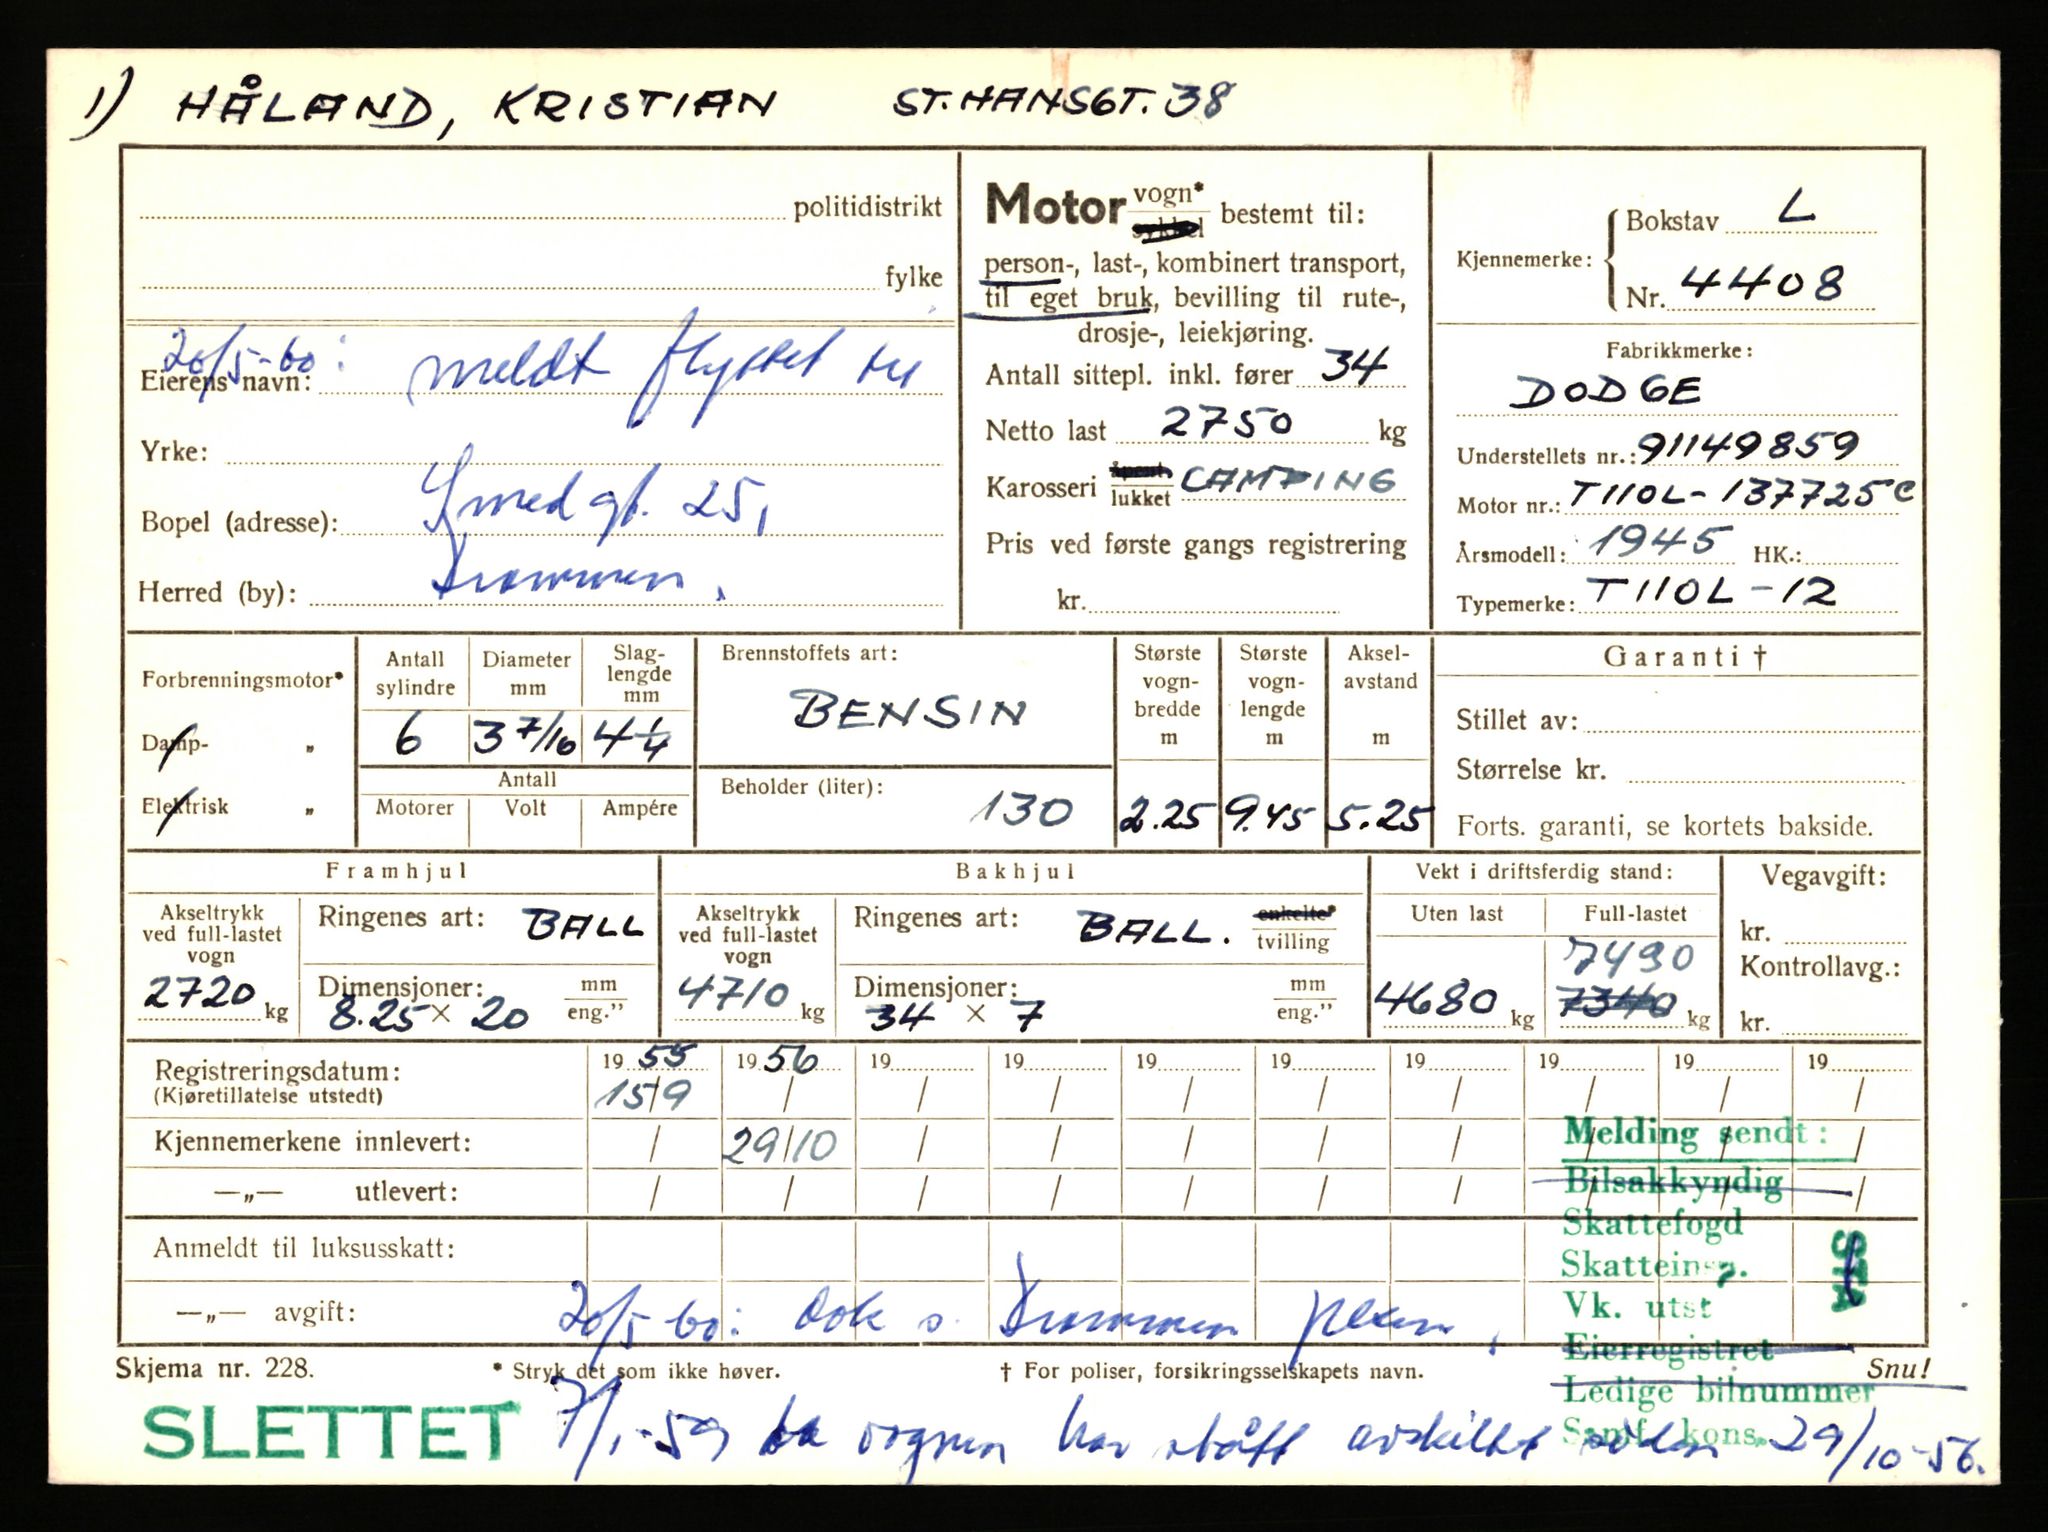 1) HÅLAND, KRISTIAN ST. HANSGT. 38
politidistrikt
fylke
20/5-60: meldt flyttet til
Eierens navn:
Yrke:
Smedgt. 25,
Bopel (adresse):
Drammen.
Herred (by):
Motor vogn* sykkel bestemt til:
person-, last-, kombinert transport,
til eget bruk, bevilling til rute-,
drosje-, leiekjøring.
Antall sittepl. inkl. fører 34
Netto last 2750 kg
Karosseri åpent lukket CAMPING
Pris ved første gangs registrering
kr.
Kjennemerke: Bokstav L
Nr. 4408
Fabrikkmerke:
DODGE
Understellets nr.: 91149859
Motor nr.: T110L-137725C
Årsmodell: 1945 HK.:
Typemerke: T110L-12
Forbrenningsmotor*
Damp- „
Elektrisk „
Antall sylindre 6
Diameter mm 3 7/16
Slag-lengde mm 4 1/4
Antall
Motorer Volt Ampére
Brennstoffets art:
BENSIN
Beholder (liter): 130
Største vogn-bredde m 2.25
Største vogn-lengde m 9.45
Aksel-avstand m 5.25
Garanti †
Stillet av:
Størrelse kr.
Forts. garanti, se kortets bakside.
Framhjul
Akseltrykk ved full-lastet vogn
2720 kg
Ringenes art: BALL
Dimensjoner: mm eng.”
8.25 x 20
Bakhjul
Akseltrykk ved full-lastet vogn
4710 kg
Ringenes art: BALL. enkelte* tvilling
Dimensjoner: mm eng.”
34 x 7
Vekt i driftsferdig stand:
Uten last Full-lastet
7490
4680 kg 7340 kg
Vegavgift:
kr.
Kontrollavg.:
kr.
Registreringsdatum: 19 55 19 56 19 19 19 19 19 19 19 19
(Kjøretillatelse utstedt) 15/9 / / / / / / / / /
Kjennemerkene innlevert: / 29/10 / / / / / / / /
—„— utlevert: / / / / / / / / / /
Anmeldt til luksusskatt:
—„— avgift: 20/5-60: Dok s. Drammen
Melding sendt:
Bilsakkyndig
Skattefogd
Skatteinsp.
Vk. utst
Eierregistret
Ledige bilnummer
Samf. kons.
Skjema nr. 228. * Stryk det som ikke høver. † For poliser, forsikringsselskapets navn. Snu!
SLETTET 7/1-59 da vognen har stått avskiltet siden 29/10-56.